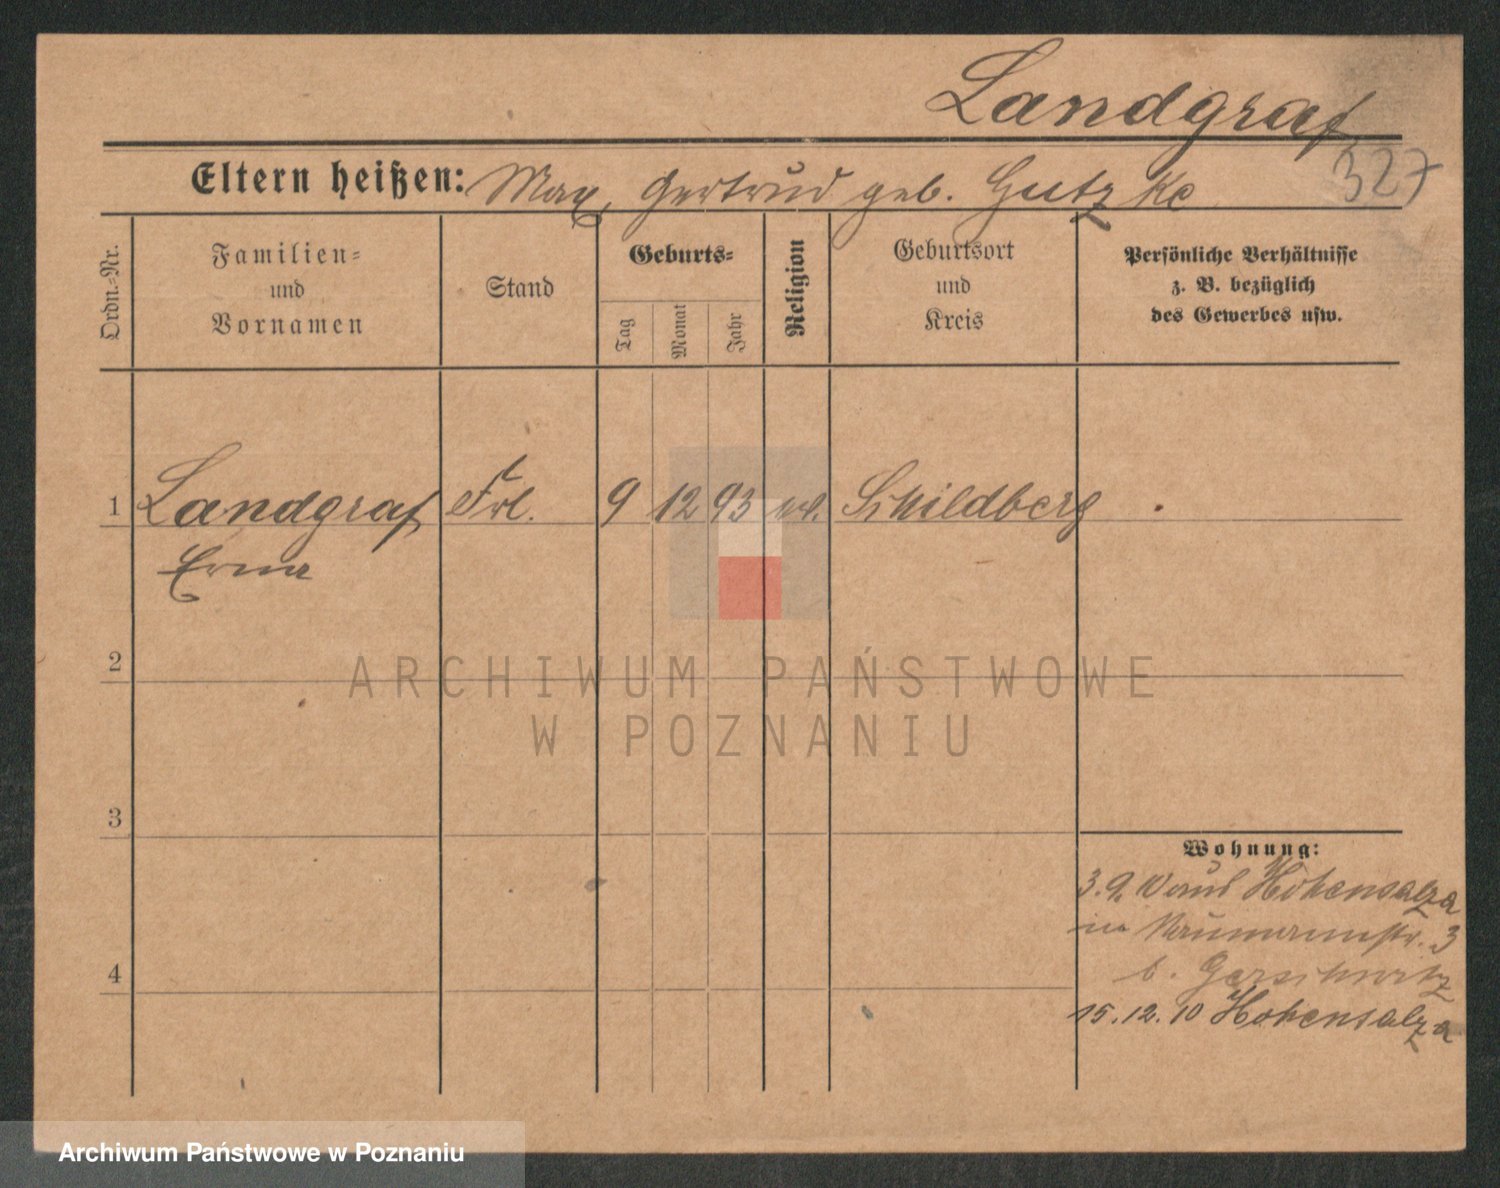 Landgraf
327
Eltern heißen: Max, Gertrud geb. Gutzke
Ordn.-Nr.
Familien-
und
Vornamen
Stand
Geburts-
Tag
Monat
Jahr
Religion
Geburtsort
und
Kreis
Persönliche Verhältnisse
z. B. bezüglich
des Gewerbes usw.
1 Landgraf Frl. 9 12 93 Schildberg
Erna
2
ARCHIWUM PAŃSTWOWE
W POZNANIU
3
Wohnung:
3.9. 10 aus Hohensalza
in Naumannstr. 3
b.
4
15.12.10 Hohensalza
Archiwum Państwowe w Poznaniu